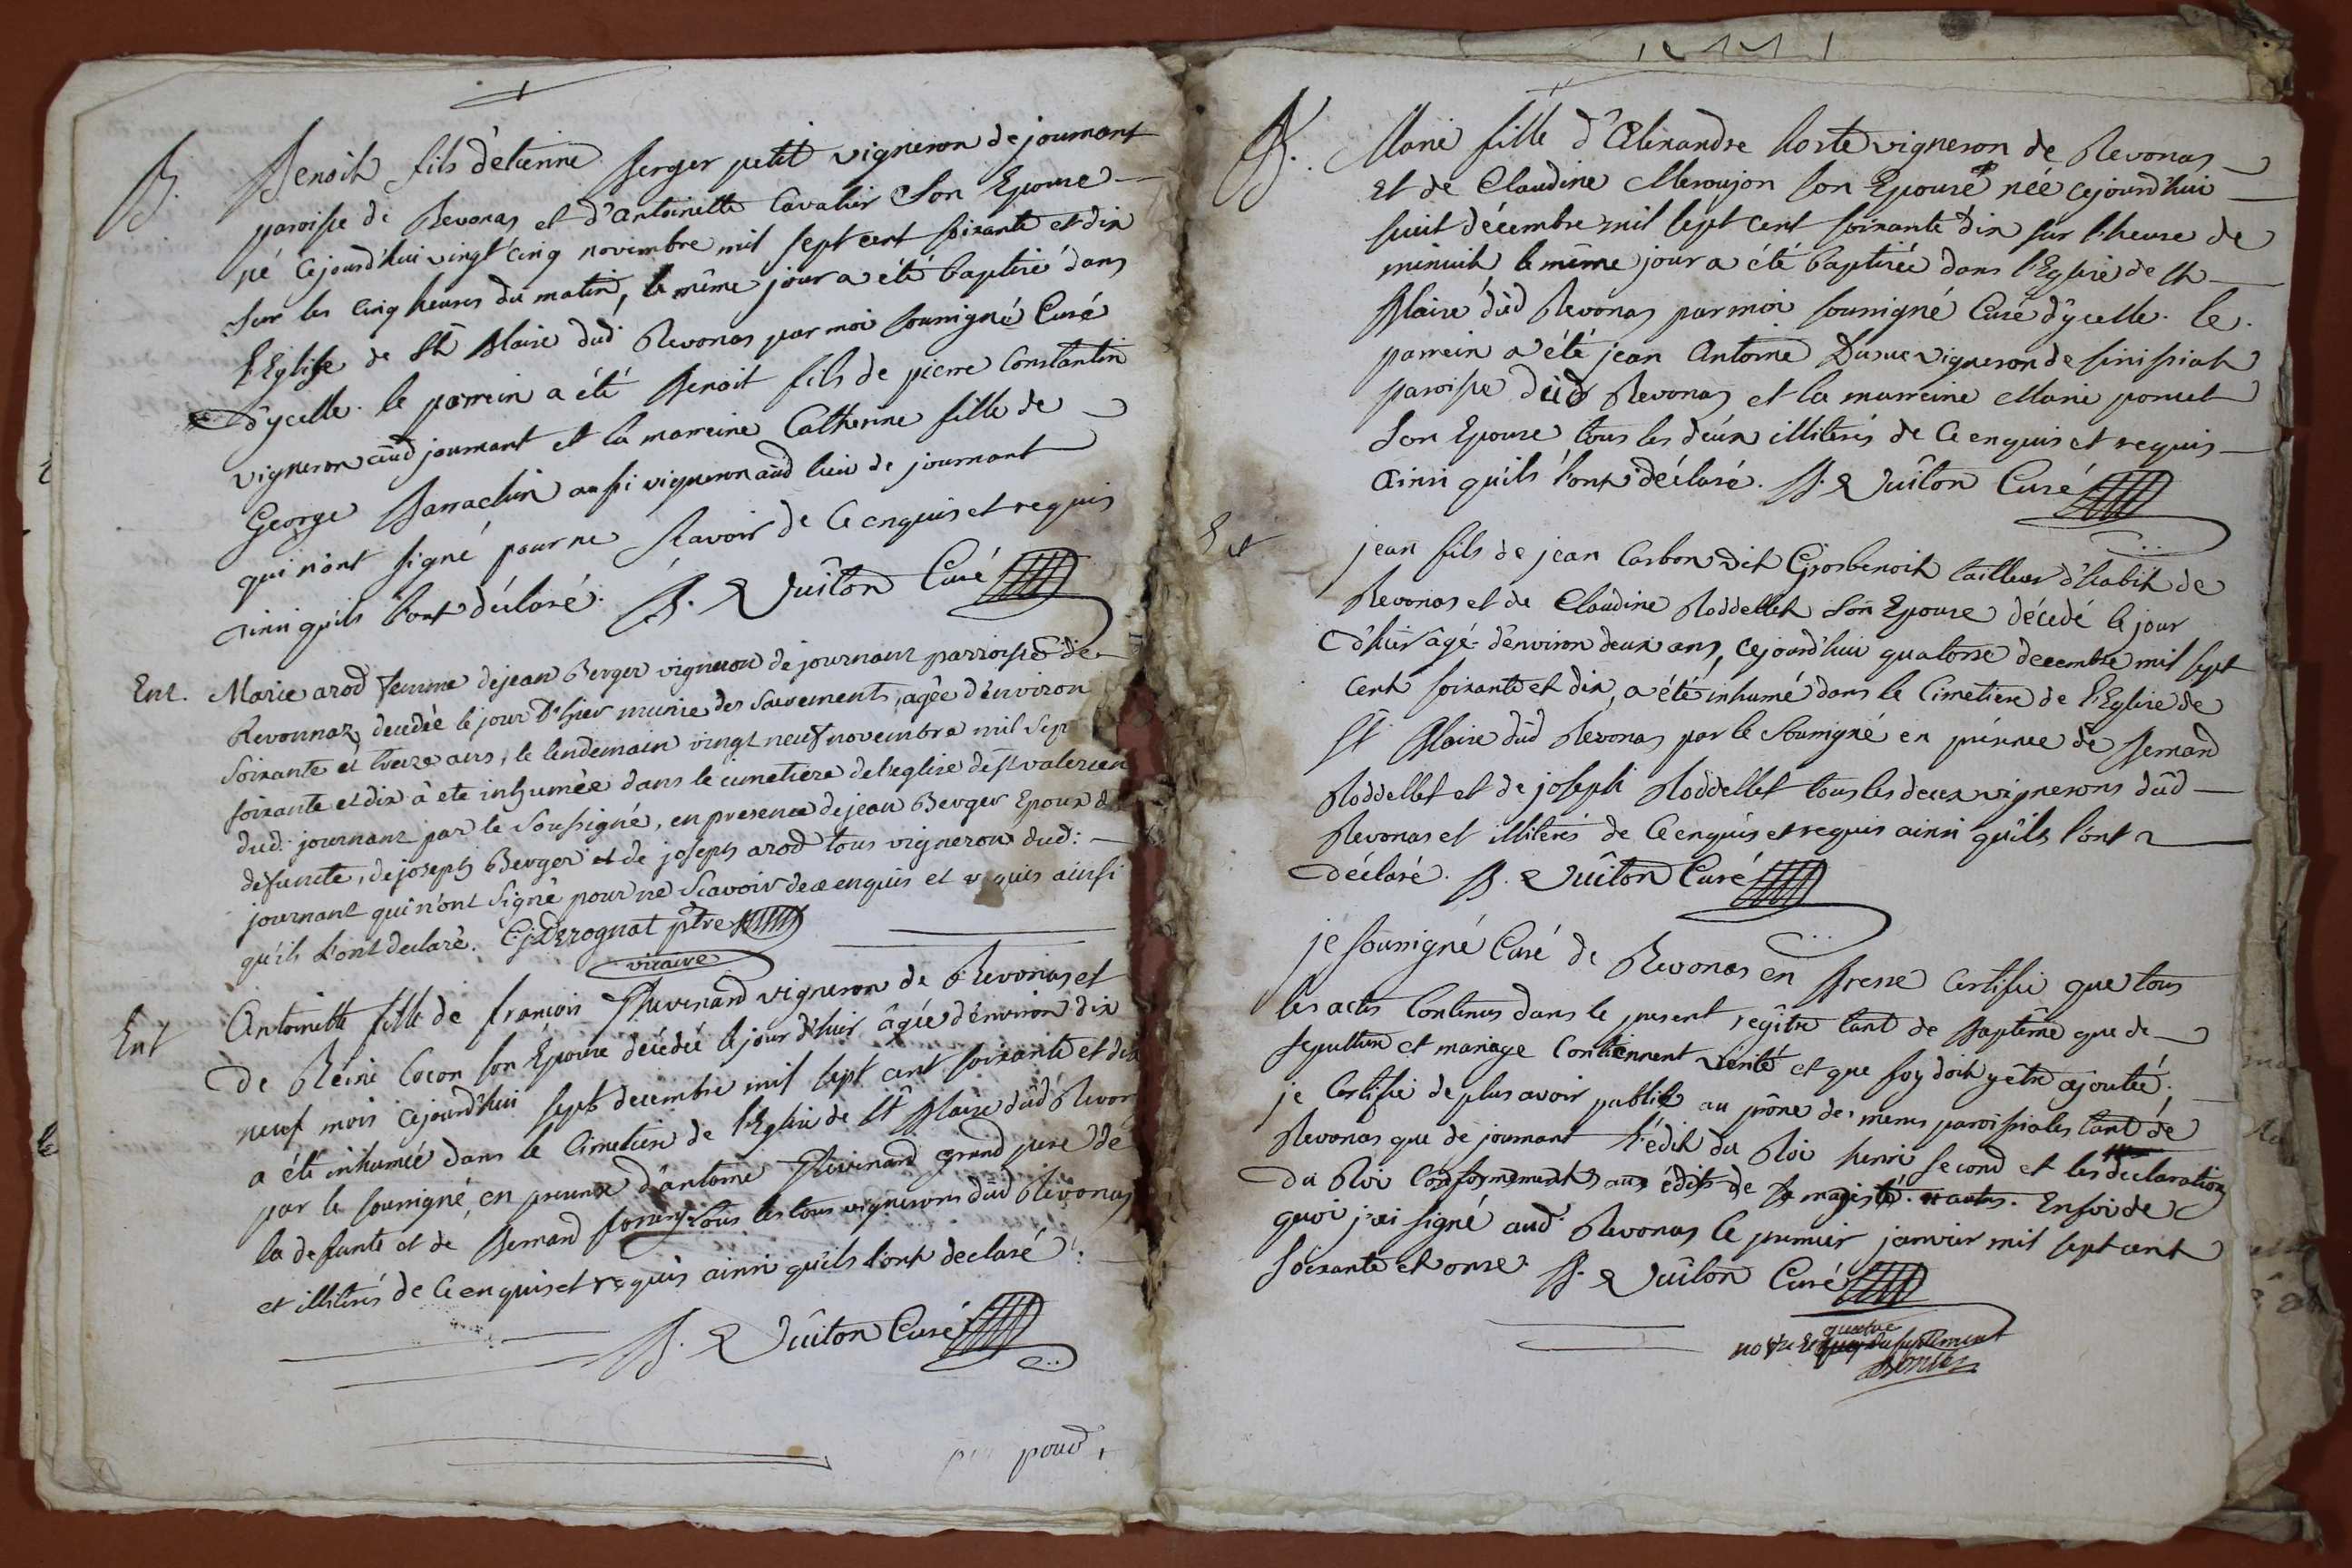 B. Benoit fils d'etienne Berger petit vigneron de journant
paroisse de Revonas et d'antoinette Cavalier Son Epouse
né Cejourd'hui vingt Cinq novembre mil sept cent soixante et dix
sur les cinq heures du matin, le même jour a été baptisé dans
l'Eglise de St Blaise dud. Revonas par moi soussigné Curé
d'ycelle. le parrein a été Benoit fils de pierre Constantin
vigneron aud journant et la marreine Catherine fille de
George Barrachin aussi vigneron aud lieu de journant
qui n'ont signé pour ne Scavoir de Ce enquis et requis
ainsi qu'ils l'ont déclaré. B. Vuiton Curé
Ent. Marie arod femme de jean Berger vigneron de journant parroisse de
Revonnaz decedée le jour D'hier munie des Sacrements, agée d'environ
Soixante et treize ans, le lendemain vingt neuf novembre mil Sep
soixante et dix à eté inhumée dans le cimetiere de l'eglise de st valerien
dud: journant par le Soussigné, en presence de jean Berger Epoux d
defuncte, de joseph Berger et de joseph arod tous vigneron dud:
journant qui n'ont Signé pour ne Scavoir de ce enquis et requis ainsi
qu'ils L'ont declaré. C: j: Derognat ptre
vicaire
Ent Antoinette fille de francois Thevenard vigneron de Revonas et
de Reine Cocon son Epouse décédée le jour d'hier âgée d'environ dix
neuf mois Cejourd'hui sept decembre mil sept cent soixante et dix
a été inhumée dans le Cimetiere de l'Eglise de St Blaise dud Revon
par le soussigné, en presence d'antoine Thevenard grand pere de
la defunte et de Bernand tous vignerons dud Revonas
et illiterés de Ce enquis et requis ainsi qu'ils l'ont declaré.
B. Vuiton Curé
poud
B. Marie fille d'Alexandre hoste vigneron de Revonas
et de Claudine Meroujon son Epouse née cejourd'hui
huit décembre mil sept cent soixante dix sur l'heure de
minuit le même jour a été baptisée dans l'Eglise de St
Blaise dud Revonas par moi soussigné Curé d'ycelle. le
parrein a été jean Antoine vigneron de sinissiat
paroisse dud Revonas et la marreine Marie poncet
son Epouse tous les deux illiterés de Ce enquis et requis
ainsi qu'ils l'ont déclaré. B. Vuiton Curé
Ent jean fils de jean Carbon dit Grosbenoit tailleur d'habit de
Revonas et de Claudine Roddellet Son Epouse décedé le jour
d'hier âgé d'environ deux ans, cejourd'hui quatorse decembre mil sept
cent soixante et dix, a été inhumé dans le Cimetiere de l'Eglise de
St Blaise dud Revonas par le Soussigné en présence de Bernand
Roddellet et de joseph Roddellet tous les deux vignerons dud
Revonas et illiterés de Ce enquis et requis ainsi qu'ils l'ont
déclaré. B. Vuiton Curé
je soussigné Curé de Revonas en Bresse Certifie que tous
les actes Contenus dans le present régitre tant de Baptême que de
sepulture et mariage Contiennent verité et que foy doit y être ajoutée;
je Certifie de plus avoir publié au prône des messes paroissiales tant de
Revonas que de journant l'édit du Roi henri second et les declarations
du Roi Conformement aux édits de Sa majesté. Enfoi de
quoi j'ai signé aud. Revonas le premier janvier mil sept cent
soixante et onse. B. Vuiton Curé
quatre